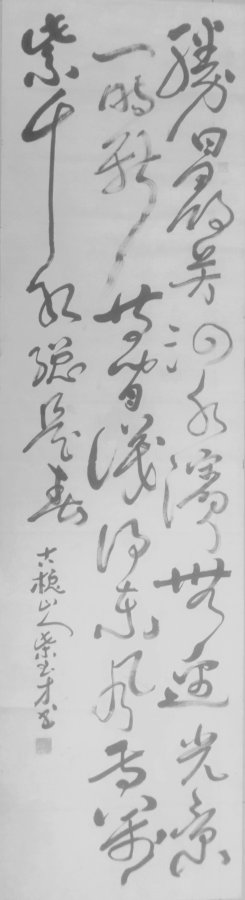 勝日尋芳泗水濱無邊光景
一時新等閒識得東風面萬
紫千紅總是春